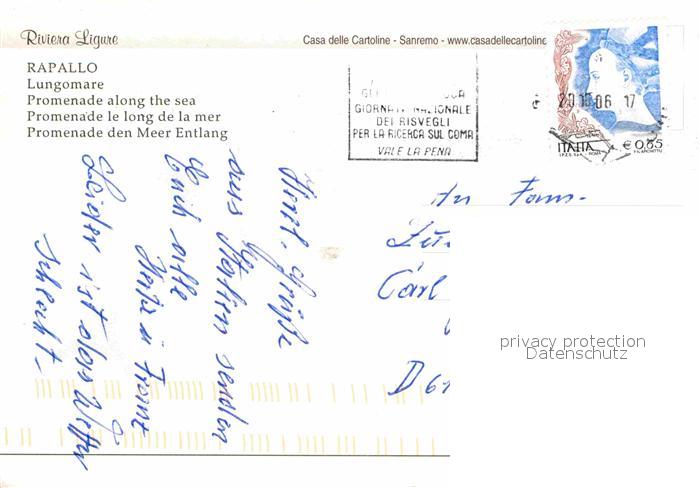 Riviera Ligure
Casa delle Cartoline - Sanremo - www.casadellecartoline
RAPALLO
Lungomare
Promenade along the sea
Promenade le long de la mer
Promenade den Meer Entlang
GIORNATA NAZIONALE
DEI RISVEGLI
PER LA RICERCA SUL COMA
VALE LA PENA
20 15 06 17
ITALIA € 0,65
I.P.Z.S. S.p.A. - ROMA
An Fam.
Carl
D 61
privacy protection
Datenschutz
Herzl. Grüße
aus Italien senden
Euch alle
Leider ist das Wetter
schlecht.